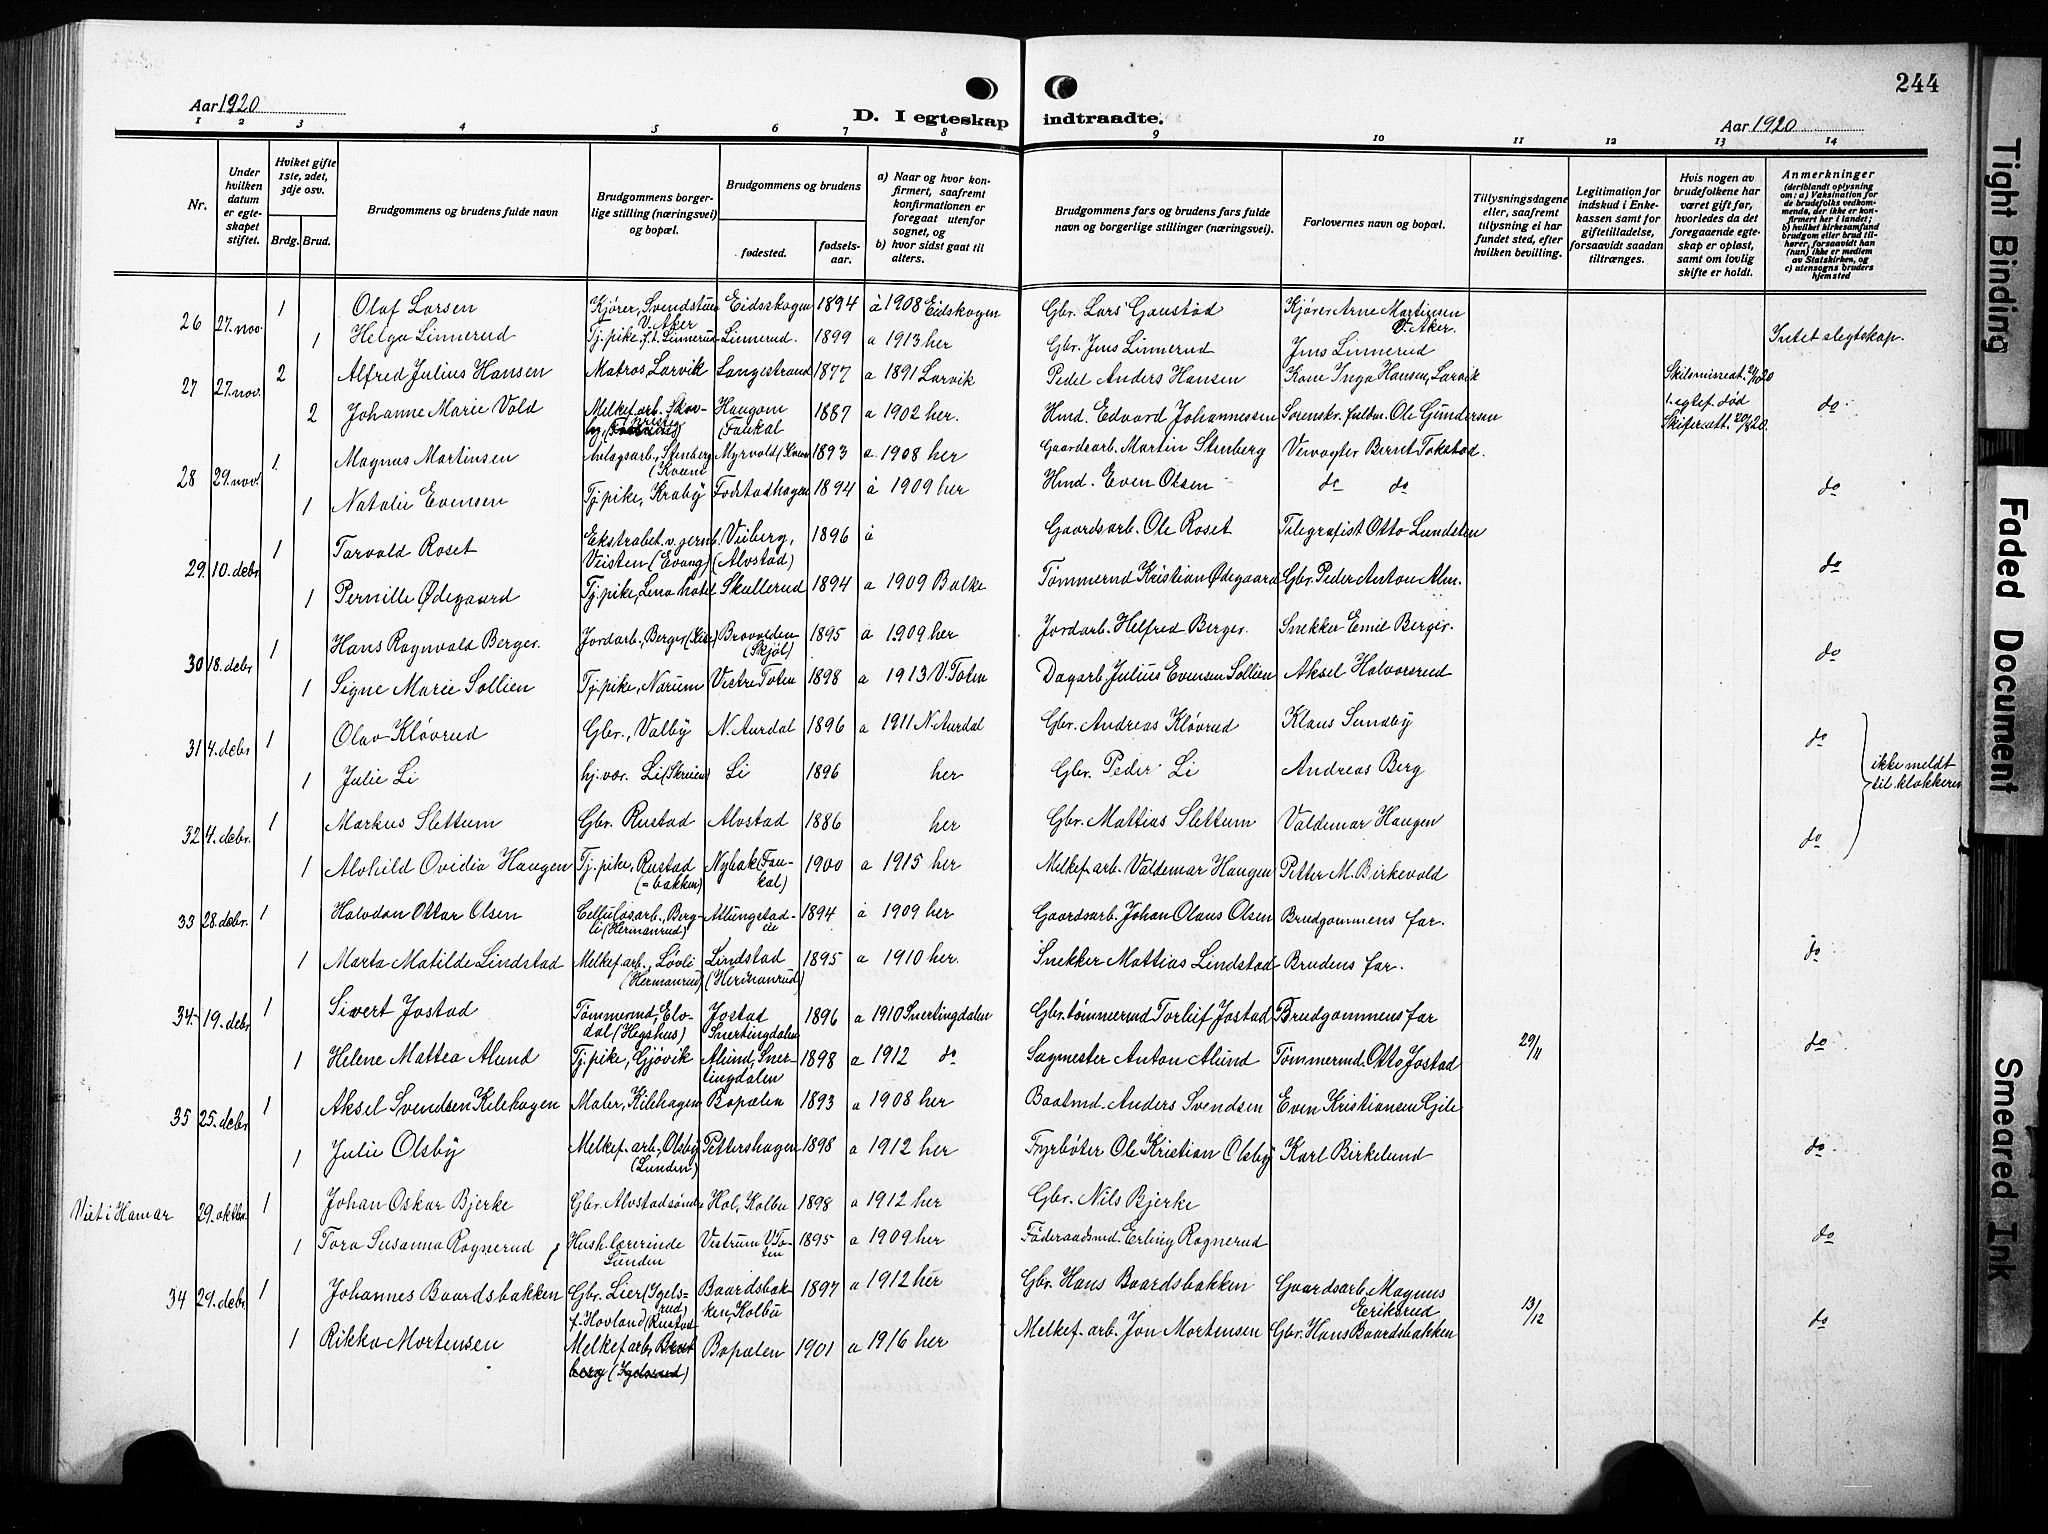 244
Aar 1920
D. I egteskap indtraadte.
Aar 1920
1 2 3 4 5 6 7 8 9 10 11 12 13 14
Nr.
Under hvilken datum er egteskapet stiftet.
Hviket gifte 1ste, 2det, 3dje osv.
Brdg. Brud.
Brudgommens og brudens fulde navn
Brudgommens borgerlige stilling (næringsvei) og bopæl.
Brudgommens og brudens
fødested.
fødselsaar.
a) Naar og hvor konfirmert, saafremt konfirmationen er foregaat utenfor sognet, og
b) hvor sidst gaat til alters.
Brudgommens fars og brudens fars fulde navn og borgerlige stillinger (næringsvei).
Forlovernes navn og bopæl.
Tillysningsdagene eller, saafremt tillysning ei har fundet sted, efter hvilken bevilling.
Legitimation for indskud i Enkekassen samt for giftetilladelse, forsaavidt saadan tiltrænges.
Hvis nogen av brudefolkene har været gift før, hvorledes da det foregaaende egteskap er opløst, samt om lovlig skifte er holdt.
Anmerkninger
(deriblandt oplysning om: a) Vaksination for de brudefolks vedkommende, der ikke er konfirmert her i landet; b) hvilket kirkesamfund brudgom eller brud tilhører, forsaavidt han (hun) ikke er medlem av Statskirken, og c) utensogns bruders hjemsted
26 27. nov. 1 Olaf Larsen Kjører, Svendstuen V. Aker Eidsskogen 1894 a 1908 Eidskogen Gbr. Lars Gaustad Kjører Arne Martinsen V. Aker.
1 Helga Linnerud Tj. pike, f.t. Linnerud Linnerud. 1899 a 1913 her Gbr. Jens Linnerud Jens Linnerud Intet slegtskap.
27 27. nov. 2 Alfred Julius Hansen Matros, Larvik Langestrand 1877 a 1891 Larvik Anders Hansen Kone Inga Hansen, Larvik
2 Johanne Marie Vold Melkef. arb. Haugom (Faukal 1887 a 1902 her. Hmd. Edvard Johannessen Sorenskr. fuldm. Ole Gundersen 1. egtef. død do
28 29. nov. 1 Magnus Martinsen Avlagsarb., Stenberg (Kvem Myrvold (Kvem 1893 a 1908 her Gaardsarb. Martin Stenberg Veivogter Bernt Tokstad.
1 Natalie Evensen Tj. pike, Kraby Fodstadhagen 1894 a 1909 her Hmd. Even Olsen do do do
29. 10. debr. 1 Torvald Roset Ekstrabet. v. jernb. Veisten (Evang) Veiberg, (Alvstad) 1896 a Gaardsarb. Ole Roset Telegrafist Otto Lundsten
1 Pernille Ødegaard Tj. pike, Lena hotel Skullerud 1894 a 1909 Balke Tømmermd Kristian Ødegaard Gbr. Peder Anton Alm. do
30 18. debr. 1 Hans Ragnvald Berger. Jordarb. Berger Brovolden (Skjøl) 1895 a 1909 her Jordarb. Helfred Berger. Snekker Emil Berger.
1 Signe Marie Sollien Tj. pike, Narum Vestre Toten 1898 a 1913 V. Toten Dagarb. Julius Evensen Sollien Aksel Halvorsrud do
31 4. debr. 1 Olav Kløvrud Gbr., Valby N. Aurdal 1896 a 1911 N. Aurdal Gbr. Andreas Kløvrud Klaus Sundby do
1 Julie Li hj. vær. Li (Skreien) Li 1896 her Gbr. Peder Li Andreas Berg
ikke meldt til klokkeren
32 4. debr. 1 Markus Slettum Gbr. Rustad Alvstad 1886 her Gbr. Mattias Slettum Valdemar Haugen do
1 Alvhild Ovidia Haugen Tj. pike, Rustad (=bakken) Nybak (Faukal) 1900 a 1915 her Melkef. arb. Valdemar Haugen Petter M. Birkevold
33 28. debr. 1 Halvdan Ottar Olsen Cellulosarb., Bergli (Hermanrud) Allungstadeie 1894 a 1909 her Gaardsarb. Johan Olaus Olsen Brudgommens far.
1 Marta Matilde Lindstad Melkef. arb., Løvli (Hermanrud) Lindstad (Hermanrud) 1895 a 1910 her. Snekker Mattias Lindstad Brudens far. do
34. 19. debr. 1 Sivert Jostad Tømmermd, Elvdal (Hegshus) Jostad Snertingdalen 1896 a 1910 Snertingdalen Gbr. tømmermd Torleif Jostad Brudgommens far
1 Helene Mattea Alund Tj. pike, Gjøvik Alund, Snertingdalen 1898 a 1912 do Sagmester Anton Alund Tømmermd. Otto Jostad 29/11 do
35 25. debr. 1 Aksel Svendsen Kilehagen Maler, Kilehagen Bopælen 1893 a 1908 her Baatmd. Anders Svendsen Even Kristiansen Gile
1 Julie Olsby Melkef. arb., Olsby (Lunden) Pettershagen 1898 a 1912 her Fyrbøter Ole Kristian Olsby Karl Birkelund do
Viet i Hamar 29. oktbr. 1 Johan Oskar Bjerke Gbr. Alvstadsøndre Hol, Kolbu 1898 a 1912 her Gbr. Nils Bjerke
1 Tora Susanna Rognerud Hush. lærerinde Lunden Vestrum V. Toten 1895 a 1909 her Føderaadsmd. Erling Rognerud do
34 29. debr. 1 Johannes Baardsbakken Gbr. Lier (Igelsrud) f. Hovland (Rustad Baardsbakken, Kolbu 1897 a 1912 her Gbr. Hans Baardsbakken Gaardsarb. Magnus Eriksrud
1 Rikka Mortensen Melkef arb, (Igelsrud) Bopælen 1901 a 1916 her Melkef. arb. Jon Mortensen Gbr. Hans Baardsbakken 13/12 do
Tight Binding
Faded Document
Smeared Ink